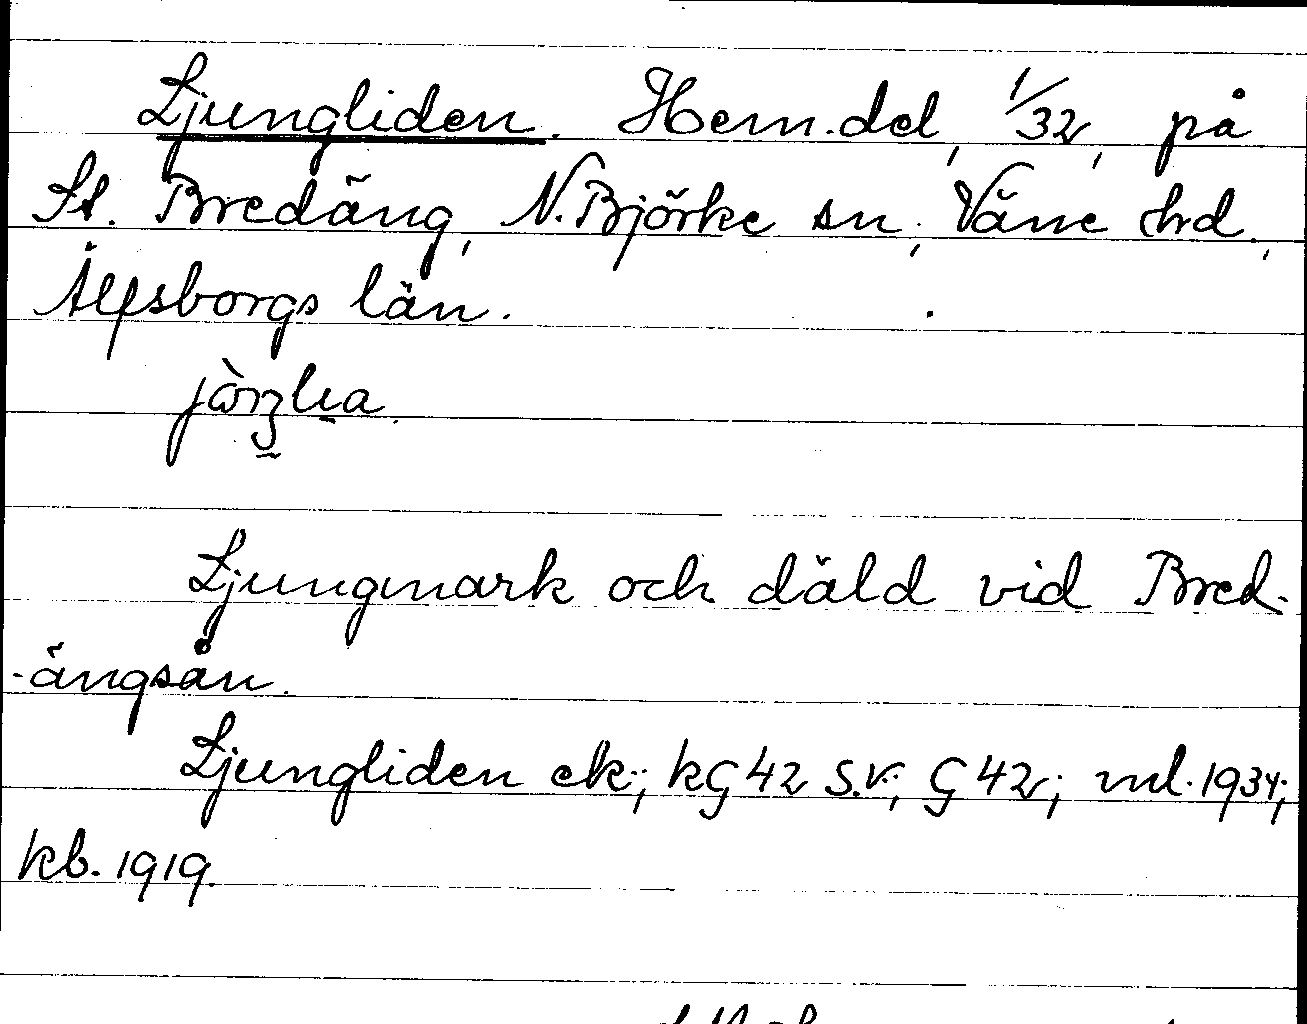 Ljungliden. Hem.del, 1/32, på
St. Bredäng, N. Björke sn, Väne hd.,
Älfsborgs län.
Ljungmark och däld vid Bred-
-ängsån.
Ljungliden ek.; kG42 S.V.; G42; ml. 1934;
kb. 1919.